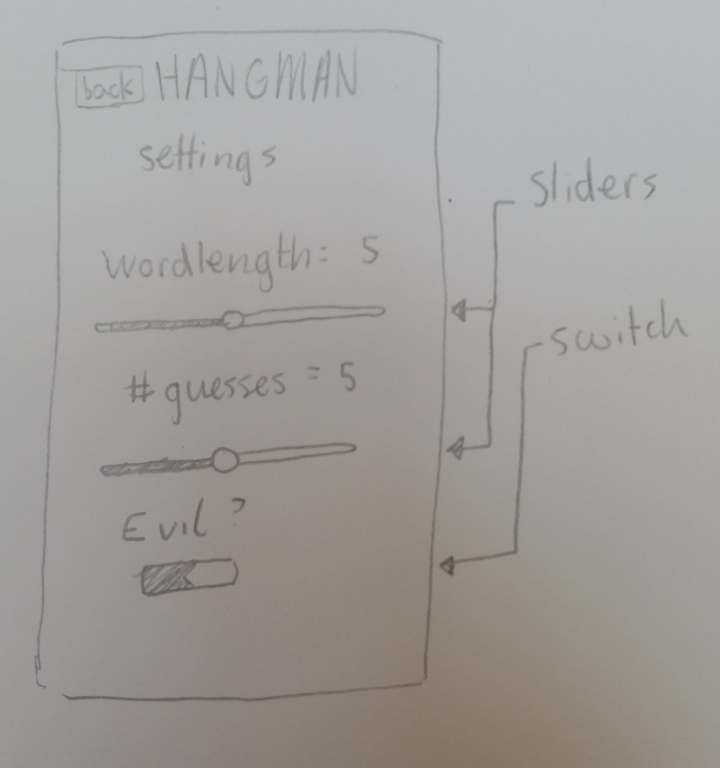 back HANGMAN
settings
wordlength: 5
#guesses = 5
Evil?
sliders
switch